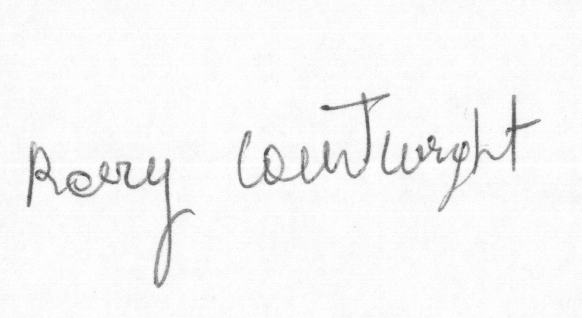 Rory Courtwright